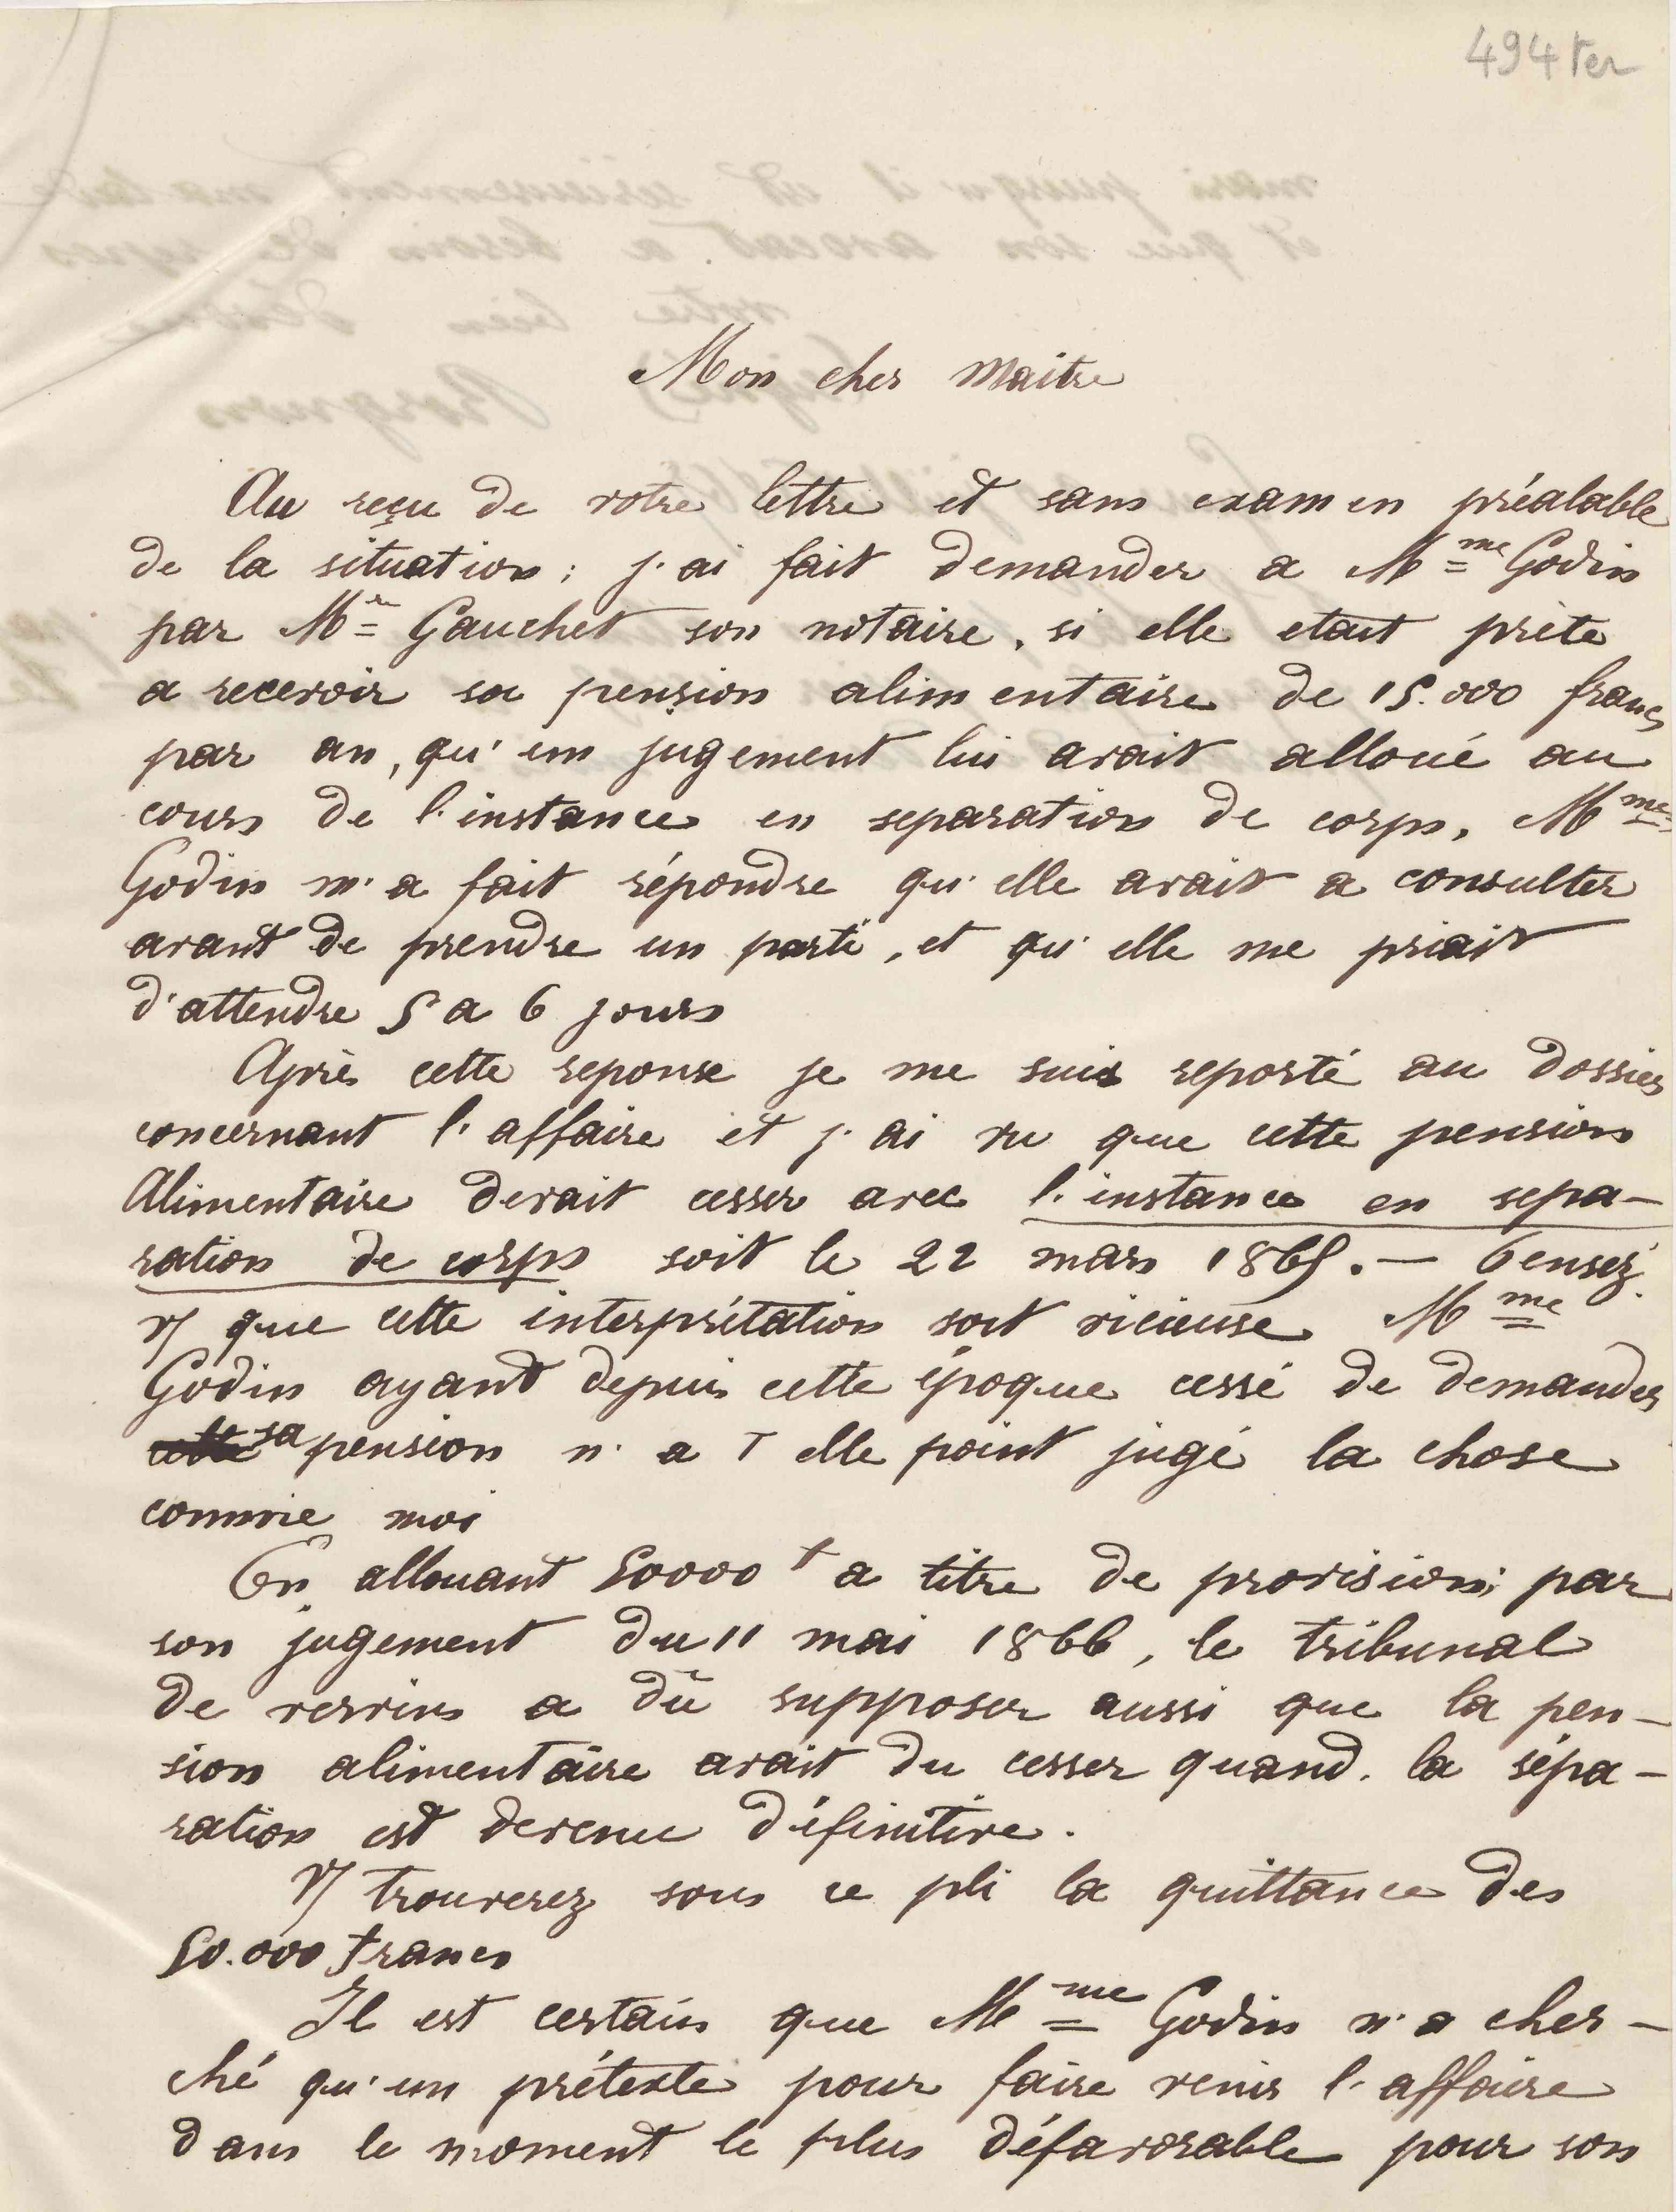 494 ter
Mon cher Maitre
Au reçu de votre lettre et sans examen préalable
de la situation ; j'ai fait demander a Mme Godin
par Mr Gauchet son notaire, si elle etait prète
a recevoir sa pension alimentaire de 15.000 francs
par an, qu'un jugement lui avait alloué au
cours de l'instance en separation de corps, Mme
Godin m'a fait répondre qu'elle avait a consulter
avant de prendre un parti, et qu'elle me priait
d'attendre 5 a 6 jours
Après cette reponse je me suis reporté au dossier
concernant l'affaire et j'ai vu que cette pension
Alimentaire devait cesser avec l'instance en sepa-
ration de corps soit le 22 mars 1865. — Pensez
v/ que cette interprétation soit vicieuse Mme
Godin ayant depuis cette époque cessé de demander
cette sa pension n'a t elle point jugé la chose
comme moi
En allouant 50000 f a titre de provision par
son jugement du 11 mai 1866, le tribunal
de vervins a dû supposer aussi que la pen-
sion alimentaire avait du cesser quand la sépa-
ration est devenue définitive.
V/ trouverez sous ce pli la quittance des
50.000 francs
Il est certain que Mme Godin n'a cher-
ché qu'un prétexte pour faire venir l'affaire
dans le moment le plus défavorable pour son